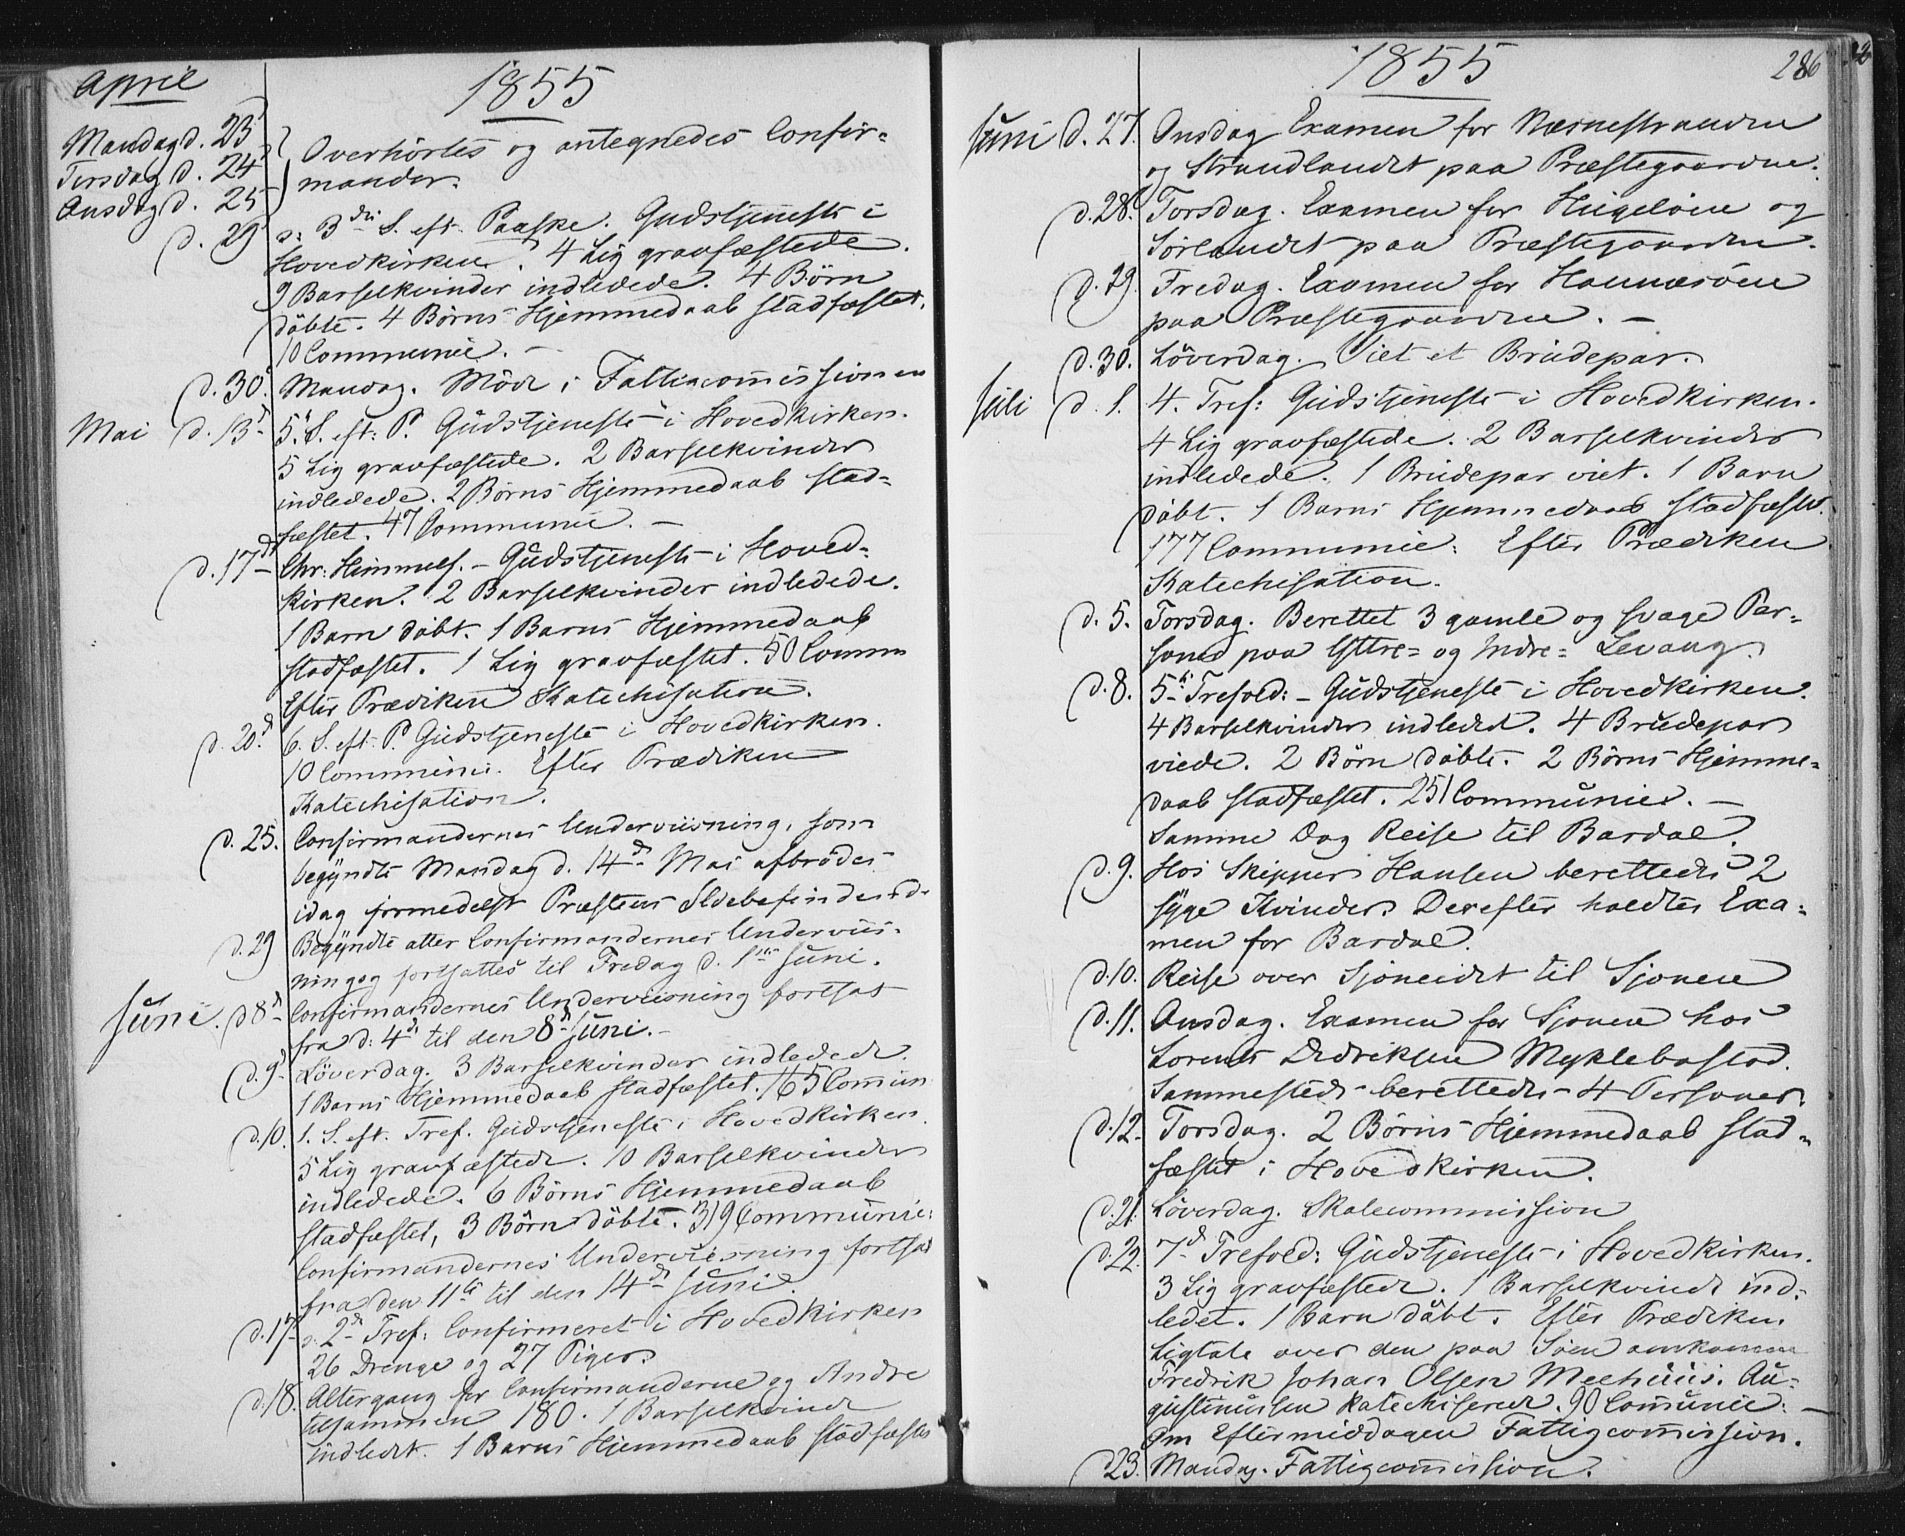 April
1855
Mandag d. 23
Tirsdag d. 24
Onsdag d. 25
Overhørtes og antegnedes Confir-
mander.
d. 29 s: 3die S. eft. Paaske. Gudstjeneste i
Hovedkirken. 4 Lig gravfæstede.
9 Barselkvinder indledede. 4 Børn
døbte. 4 Børns Hjemmedaab stadfæstet.
10 Communic. –
d. 30. Mandag. Møde i Fattigcommissionen
Mai d. 13d 5. S. eft: P. Gudstjeneste i Hovedkirken.
5 Lig gravfæstede. 2 Barselkvinder
indledede. 2 Børns Hjemmedaab stad-
fæstet. 47 Communic. –
d. 17de Chr: Himmelf. – Gudstjeneste i Hoved-
kirken. 2 Barselkvinder indledede.
1 Barn døbt. 1 Barns Hjemmedaab
stadfæstet. 1 Lig gravfæstet. 50 Comm
Efter Prædiken Katechisation.
d. 20d 6. S. eft. P. Gudstjeneste i Hovedkirken.
10 Communic. Efter Prædiken
Katechisation.
d. 25. Confirmandernes Underviisning, som
begyndte Mandag d. 14de Mai afbrødes
idag formedelst Præstens Ildebefindende
d. 29 Begyndte atter Confirmandernes Underviis-
ning og fortsattes til Fredag d. 1ste Juni.
Juni. d 8d Confirmandernes Underviisning fortsat
fra d: 4d til den 8d Juni. –
d. 9d Løverdag. 3 Barselkvinder indledede
1 Barns Hjemmedaab stadfæstet. 165 Commun
d. 10. 1. S. eft. Tref. Gudstjeneste i Hovedkirken.
5 Lig gravfæstede. 10 Barselkvinder
indledede. 6 Børns Hjemmedaab
stadfæstet, 3 Børn døbte. 319 Communic:
Confirmandernes Underviisning fortsat
fra den 11te til den 14de Juni.
d. 17d s. 2d Tref: Confirmeret i Hovedkirken
26 Drenge og 27 Piger.
d. 18. Altergang for Confirmanderne og Andre
tilsammen 180. 1 Barselkvinde
indledt. 1 Barns Hjemmedaab stadfæstet
1855
286
Juni d. 27. Onsdag Examen for Næsnestranden
og Strandlandet paa Præstegaarden.
d. 28. Torsdag. Examen for Hugeløen og
Sørlandet paa Præstegaarden.
d. 29. Fredag. Examen for Hannæsøen
paa Præstegaarden. –
d. 30. Løverdag. Viet et Brudepar.
Juli d. 1. 4. Tref: Gudstjeneste i Hovedkirken.
4 Lig gravfæstede. 2 Barselkvinder
indledede. 1 Brudepar viet. 1 Barn
døbt. 1 Barns Hjemmedaab stadfæstet.
177 Communic: Efter Prædiken
Katechisation.
d. 5. Torsdag. Berettet 3 gamle og svage Per-
soner paa Yttre- og Indre- Levang.
d. 8. 5te Trefold: – Gudstjeneste i Hovedkirken.
4 Barselkvinder indledet. 4 Brudepar
viede. 2 Børn døbte. 2 Børns Hjemme-
daab stadfæstet. 251 Communic. –
Samme Dag Reise til Bardal.
d. 9. Hos Skipper Hansen berettedes 2
syge Kvinder. Derefter holdtes Exa-
men for Bardal.
d. 10. Reise over Sjoneidet til Sjonen
d. 11. Onsdag. Examen for Sjonen hos
Lorents Didriksen Myklebostad.
Sammesteds berettedes 4 Personer.
d. 12. Torsdag. 2 Børns Hjemmedaab stad-
fæstet i Hovedkirken.
d. 21. Løverdag. Skolecommission
d. 22. 7d Trefold: Gudstjeneste i Hovedkirken.
3 Lig gravfæstede. 1 Barselkvinde ind-
ledet. 1 Barn døbt. Efter Prædiken.
Ligtale over den paa Søen omkomne
Fredrik Johan Olsen Meehuus. Au-
gustinussen katechiserede. 90 Communic: –
Om Eftermiddagen Fattigcommission.
d. 23. Mandag. Fattigcommission.